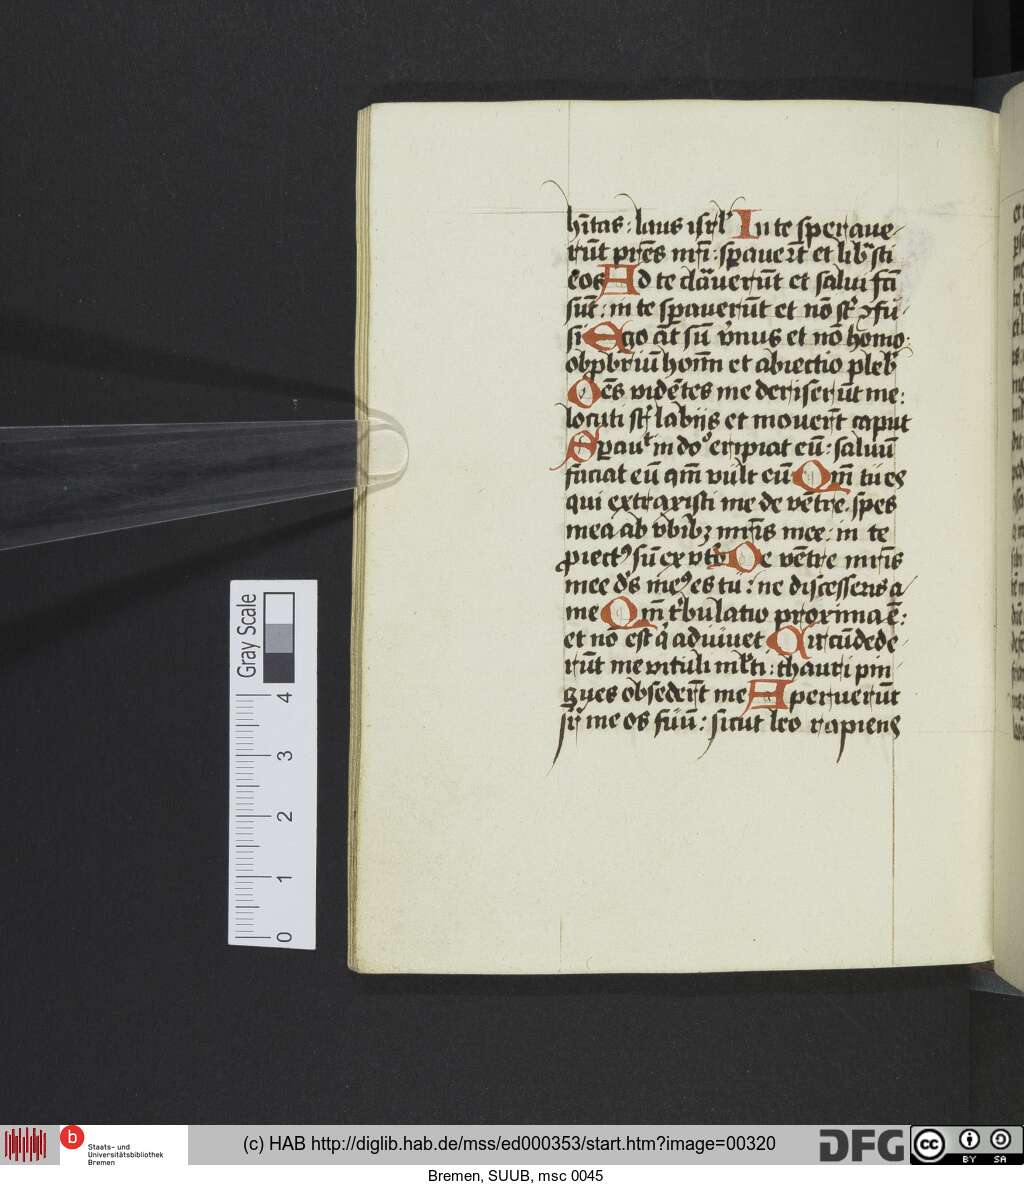 hītas : laus isrl' In te speraue
rūt prēs nr̄i : spauer̄t et lib'sti
eos Ad te clāuerūt et salui fcī
sūt : in te spauerūt et nō st' ɔfu
si Ego āt sū v'mis et nō homo :
obpbriū hoīm et abiectio pleb'
Oēs vidētes me deriserūt me :
locuti st' labijs et mouer̄t caput
Sparu't in do° eripiat eū : saluū
faciat eū qm̄ vult eū Qm̄ tu es
qui extraxisti me de vētre . spes
mea ab vb'ibꝫ mr̄is mee : in te
proiectꝰ sū ex vt'o De vētre mr̄is
mee d's meꝰ es tu : ne discesseris a
me Qm̄ t'bulatio proxima ē :
et nō est q' adiuuet Circūdede
rūt me vituli ml'ti : thauri pin
gues obseder̄t me Aperuerūt
sr' me os suū : sicut leo rapiens
Gray Scale
4
3
2
1
0
b
Staats- und
Universitätsbibliothek
Bremen
(c) HAB http://diglib.hab.de/mss/ed000353/start.htm?image=00320
DFG
cc BY SA
Bremen, SUUB, msc 0045